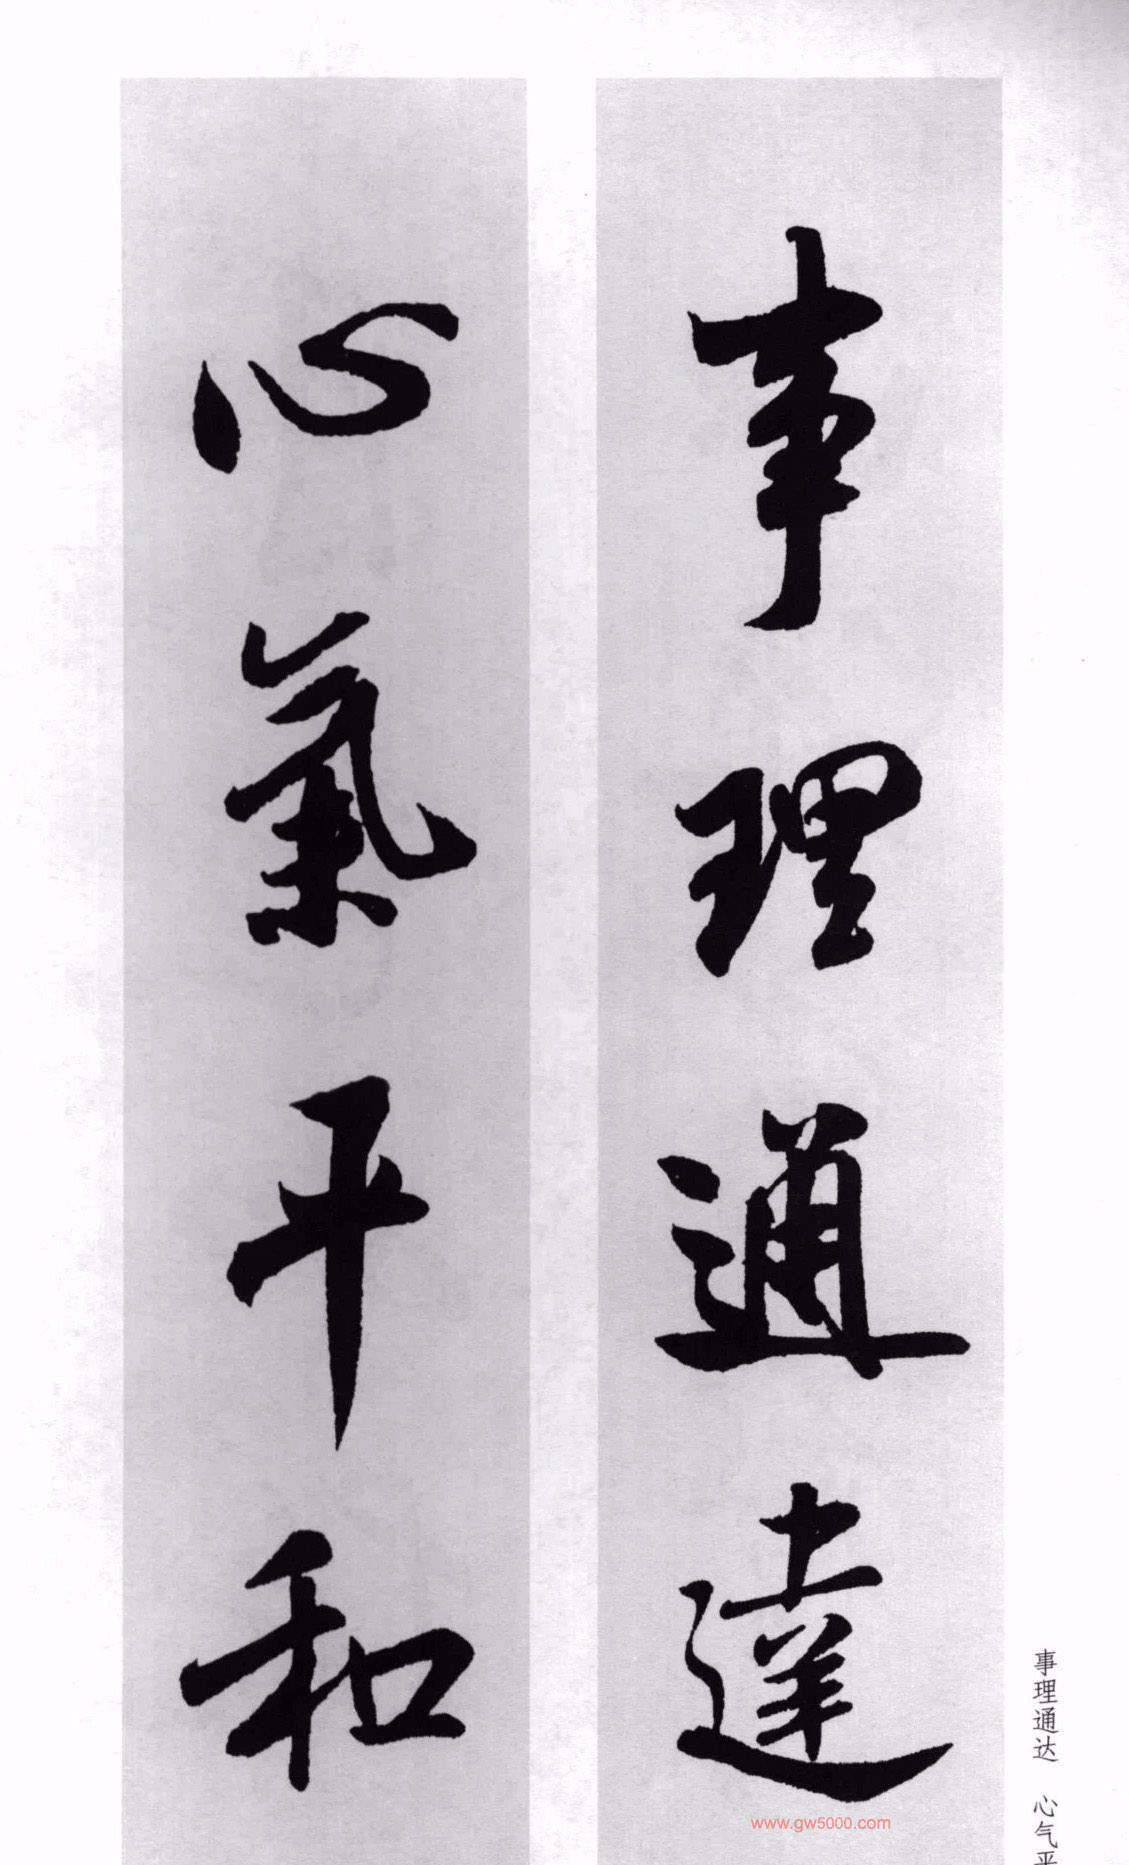 事理通達
心氣平和
事理通达 心气平
www.gw5000.com